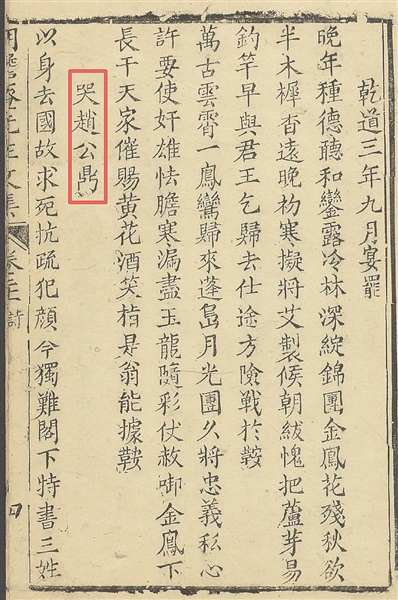 乾道三年九月宴罷
晚年種德聽和鑾露冷林深綻錦團金鳳花殘秋欲
半木樨香遠晚初寒擬將艾製侯朝紱愧把蘆芽易
釣竿早與君王乞歸去仕途方險戰於鞍
萬古雲霄一鳳鸞歸來蓬島月光團久將忠義私心
許要使奸雄怯膽寒漏盡玉龍隨彩仗赦啣金鳳下
長干天家催賜黃花酒笑指是翁能據鞍
哭趙公鼎
以身去國故求死抗疏犯顏今獨難閣下特書三姓
先生文集 詩 四